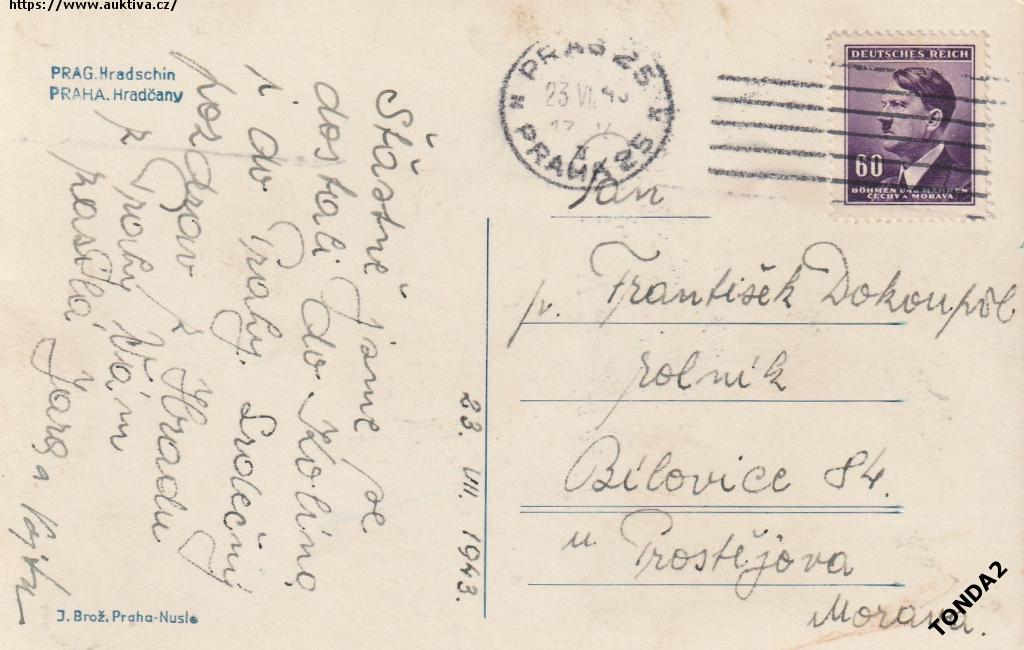 https://www.auktiva.cz/
PRAG.Hradschin
PRAHA.Hradčany
Šťastně jsme se
dostali do Kolína
i do Prahy. Srdečný
pozdrav z Hradu
z Prahy Vám
zasílá Jara a
23. VII. 1943.
J. Brož. Praha-Nusle
PRAG 25
23 VII 43
PRAHA 25
DEUTSCHES REICH
60
BÖHMEN UND MÄHREN
ČECHY A MORAVA
Pan
p. František Dokoupil
rolník
Bílovice 84.
u Prostějova
Morava.
TONDA2